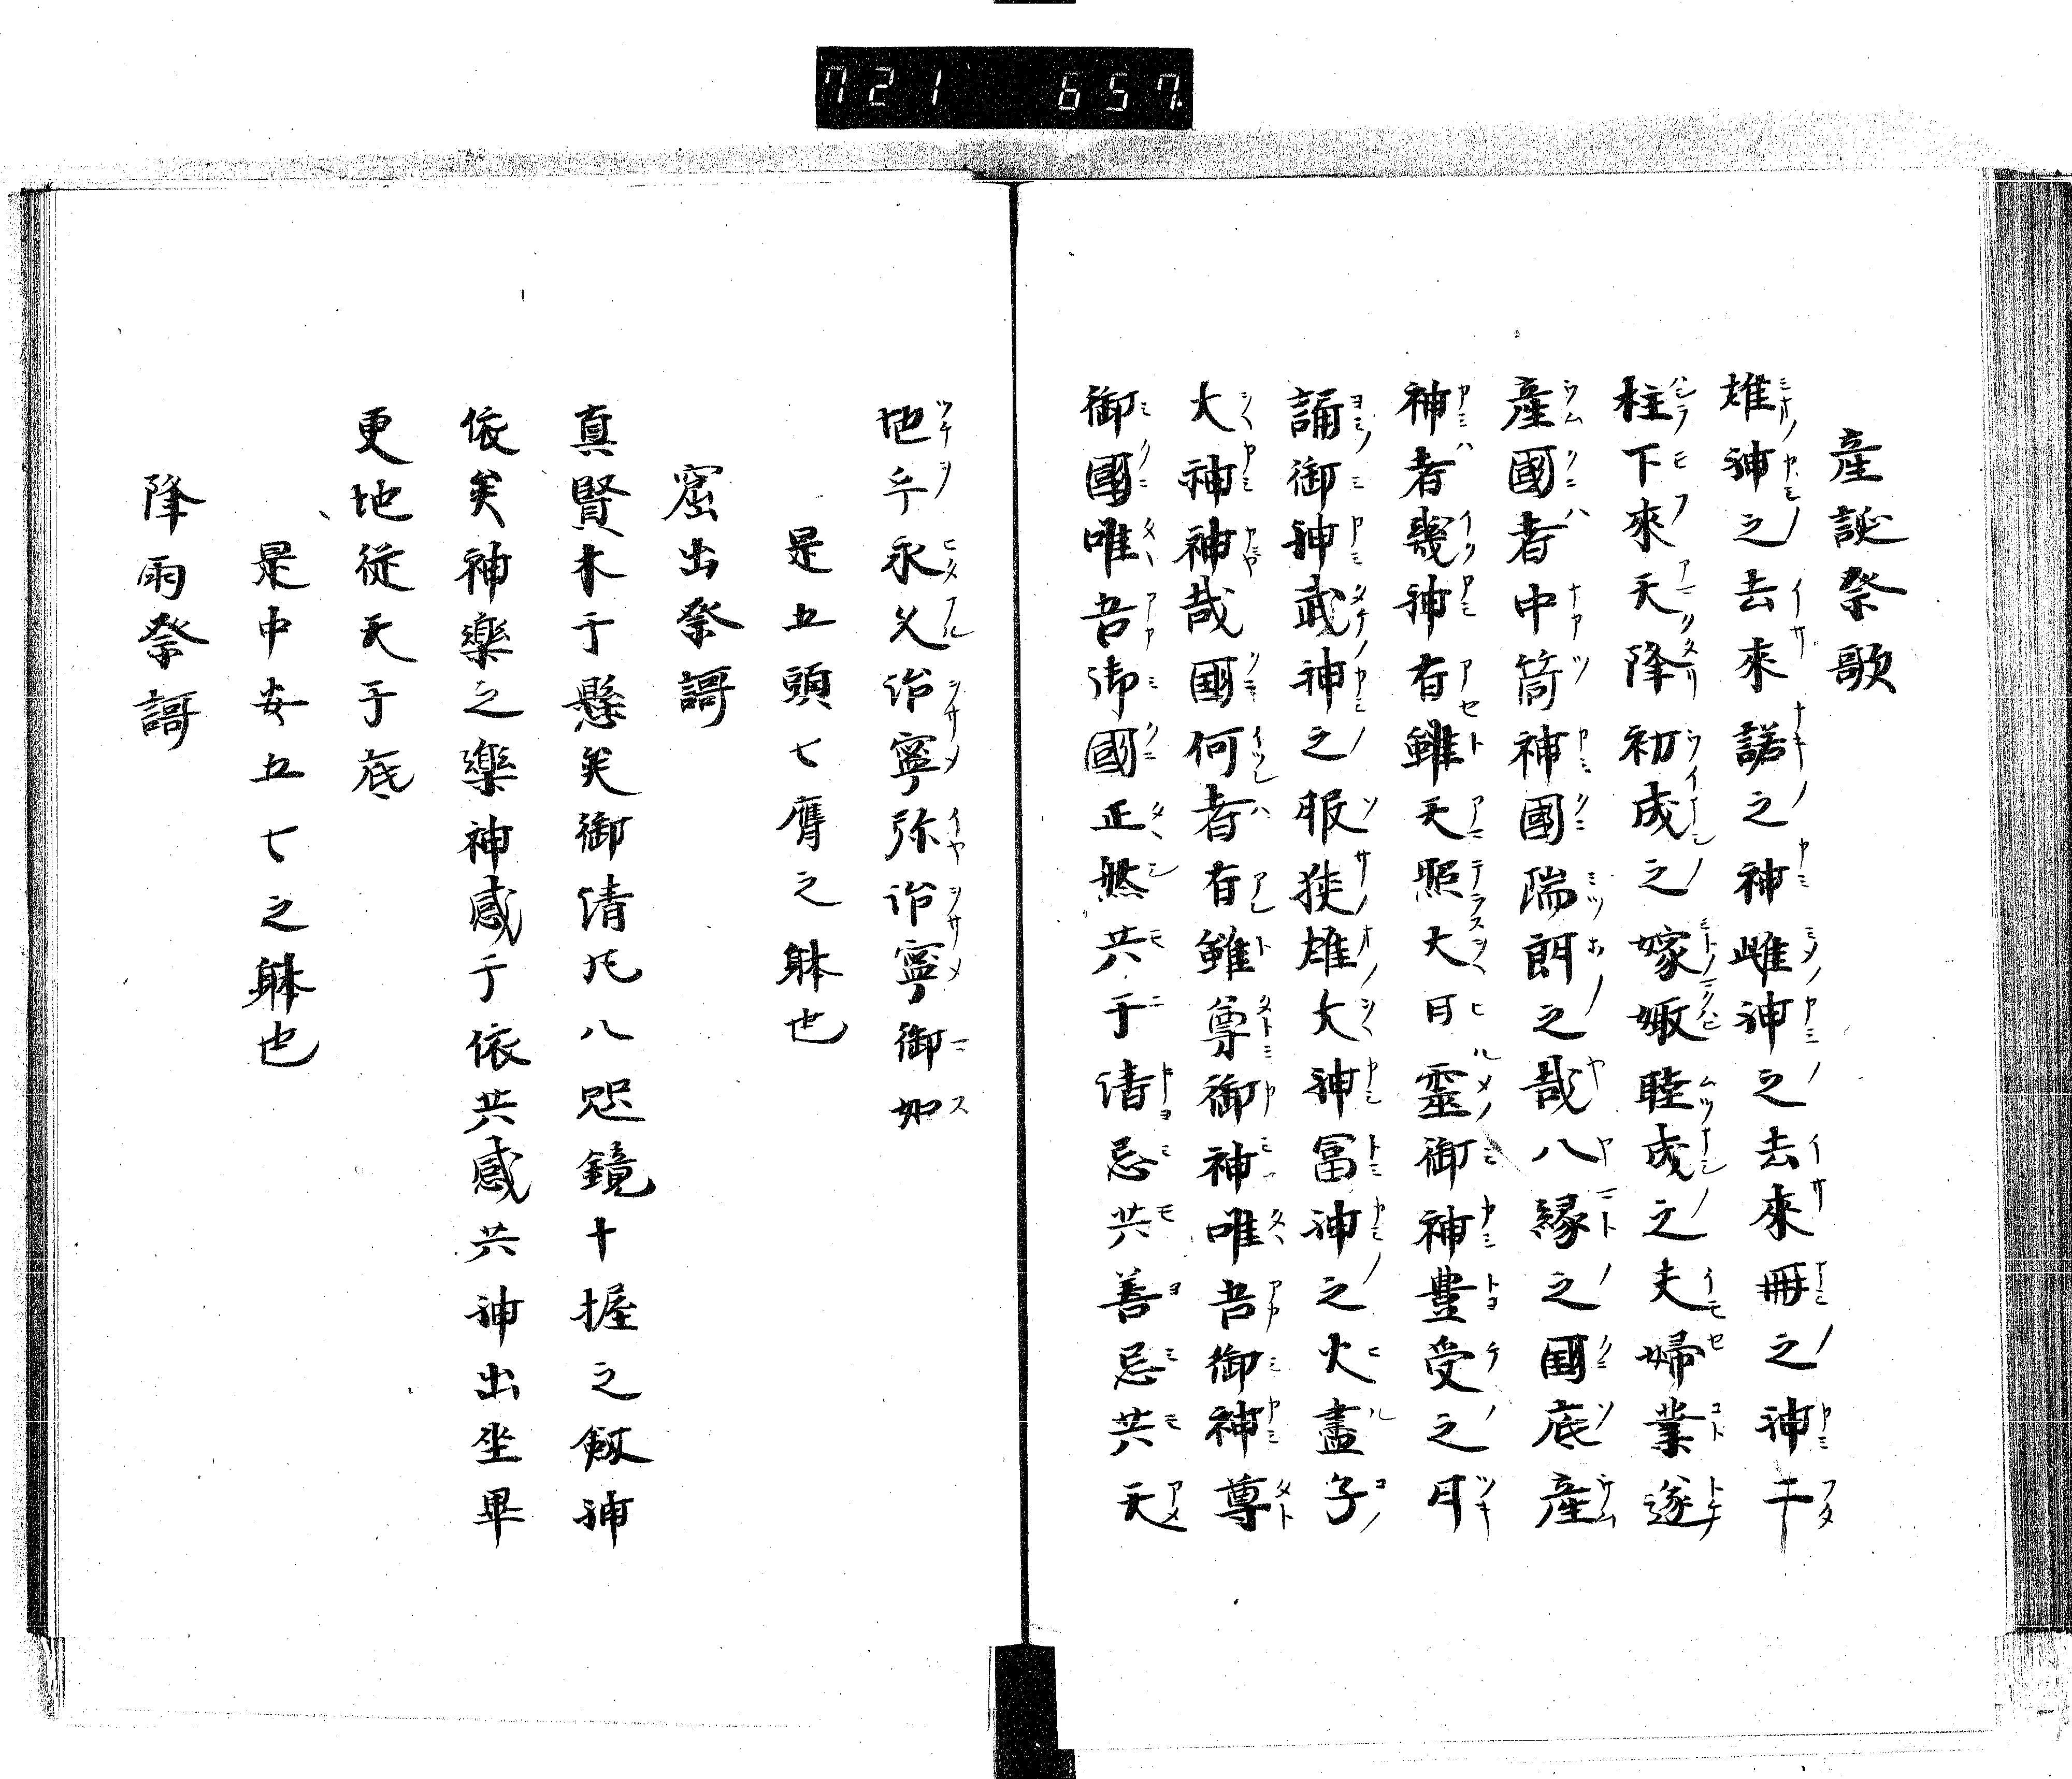 721 657
産誕祭歌
雄神之去來諾之神雌神之去來冊之神二
柱下來天降初成之嫁娵睦成之夫婦業遂
産國者中筒神國瑞餌之哉八縁之國底産
神者幾神有雖天照大日靈御神豊受之月
誦御神武神之服狭雄大神冨神之火盡子
大神神哉國何者有雖尊御神唯吾御神尊
御國唯吾御國正然共于清忌共善忌共天
地乎永久治寧弥治寧御如
是五頭七膺之躰也
窟出祭謌
真賢木于懸矣御清八咫鏡十握之劔神
依矣神樂之樂神感于依共感共神出坐畢
更地從天于底
是中安五七之躰也
降雨祭謌